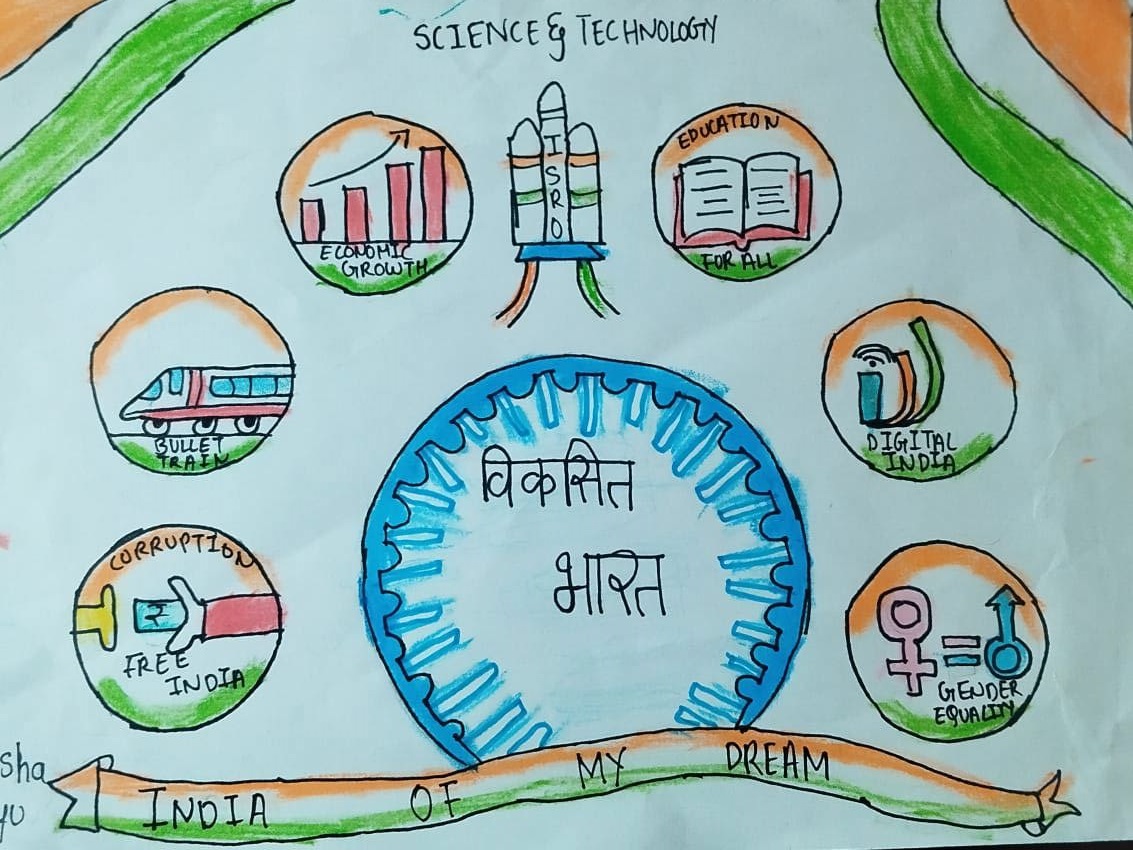 SCIENCE & TECHNOLOGY
ISRO
ECONOMIC
GROWTH
EDUCATION
FOR ALL
BULLET
TRAIN
DIGITAL
INDIA
विकसित
भारत
CORRUPTION
₹
FREE
INDIA
GENDER
EQUALITY
sha
yu
INDIA OF MY DREAM